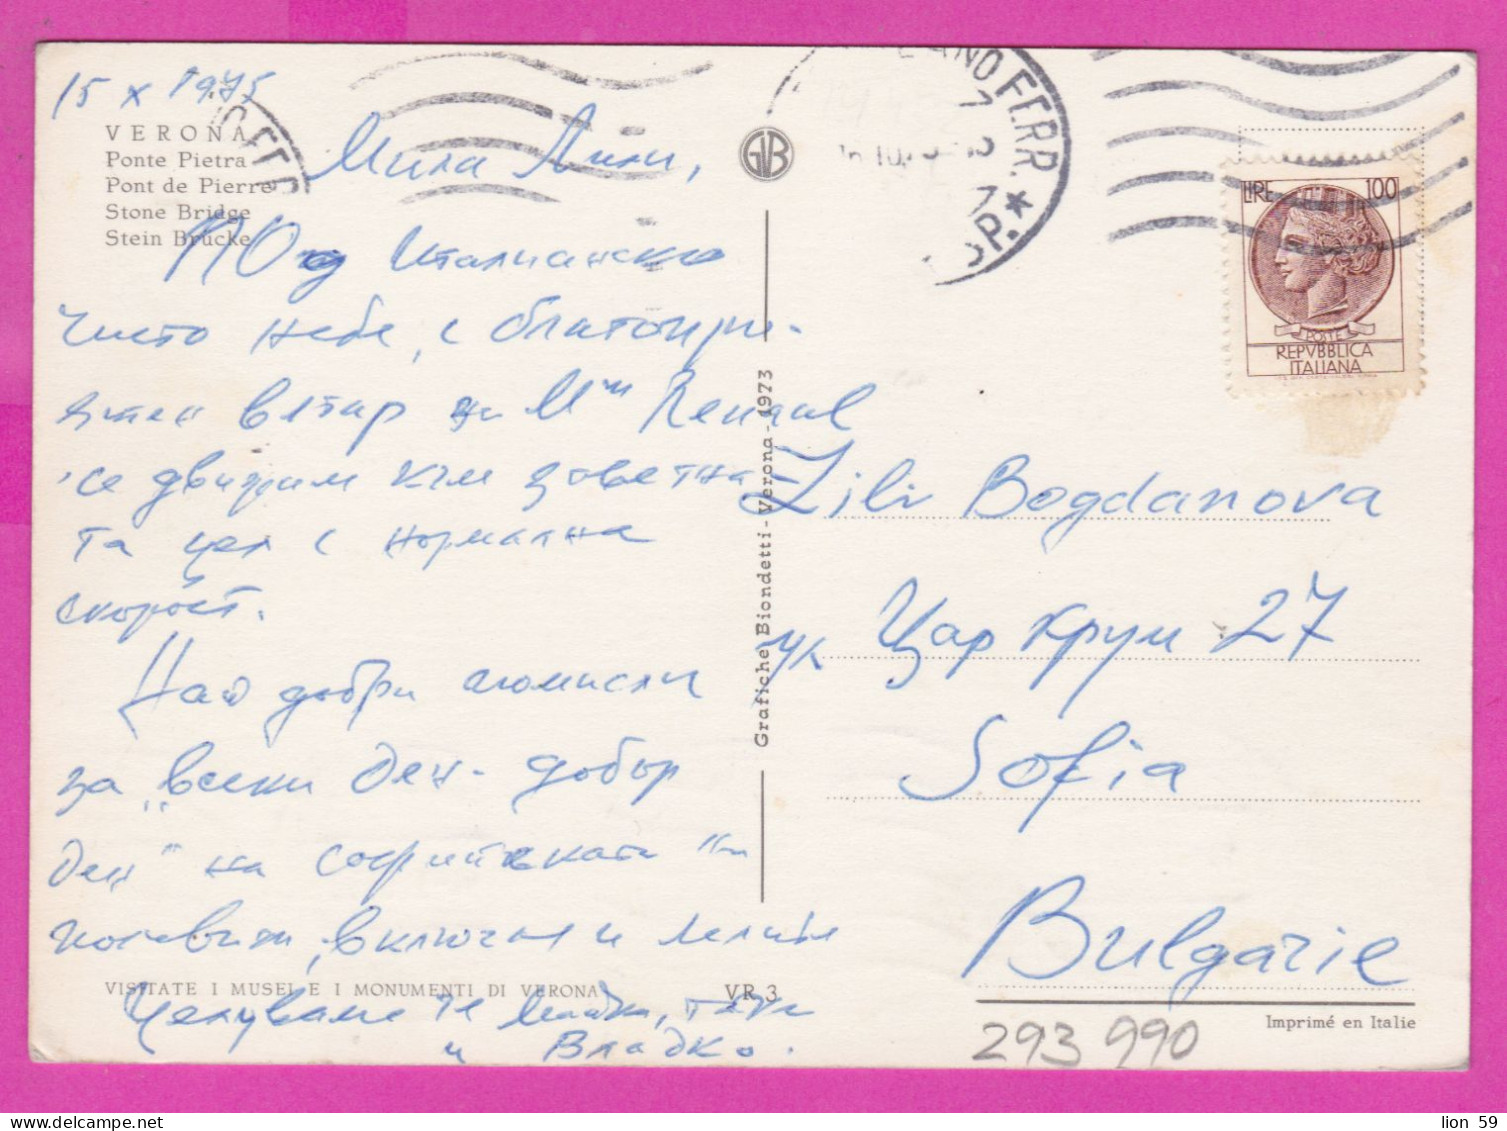 15 X 1975
VERONA
Ponte Pietra
Pont de Pierre
Stone Bridge
Stein Brücke
Мила Лили,
Под Италианско
чисто небе, с благоприятен
вятър
се движим към заветната
цел с нормална
скорост.
Най добри помисли
за „всеки ден - добър
ден" на софийската
включая и
Целуваме те Майка, тати
и Владко.
VISITATE I MUSEI E I MONUMENTI DI VERONA
VR 3
Grafiche Biondetti - Verona - 1973
GVB
ANO FERR.
SP.
LIRE 100
POSTE
REPVBBLICA
ITALIANA
Lili Bogdanova
ул Цар Крум 27
Sofia
Bulgarie
Imprimé en Italie
293 990
lion 59